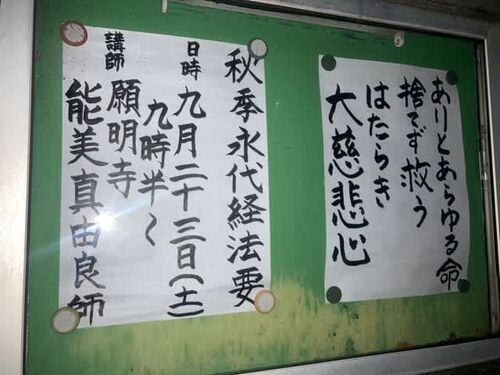 ありとあらゆる命
捨てず救う
はたらき
大慈悲心
秋季永代経法要
日時 九月二十三日(土)
九時半〜
講師 願明寺
能美真由良師